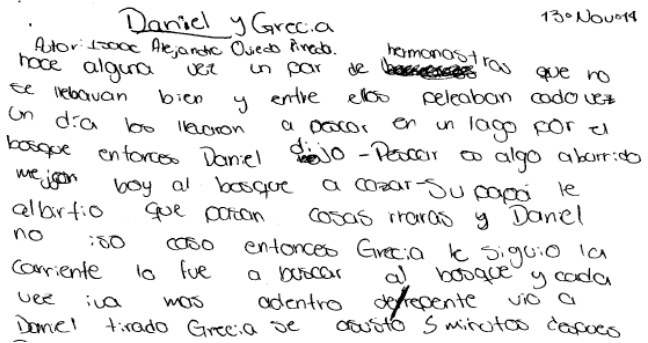 Daniel y Grecia 13°Nov°14
Autor: Isaac Alejandro Oviedo Pineda.
hace alguna vez un par de hermanastras que no
se llebavan bien y entre ellos peleaban cada vez
un día los llevaron a pescar en un lago por el
bosque entonces Daniel dijo -Pescar es algo aburrido
mejor boy al bosque a cazar-Su papá le
albirtio que pasan cosas rraras y Daniel
no iso caso entonces Grecia le siguio la
corriente lo fue a buscar al bosque y cada
vez iva mas adentro de/repente vio a
Daniel tirado Grecia se asustó 5 minutos despues